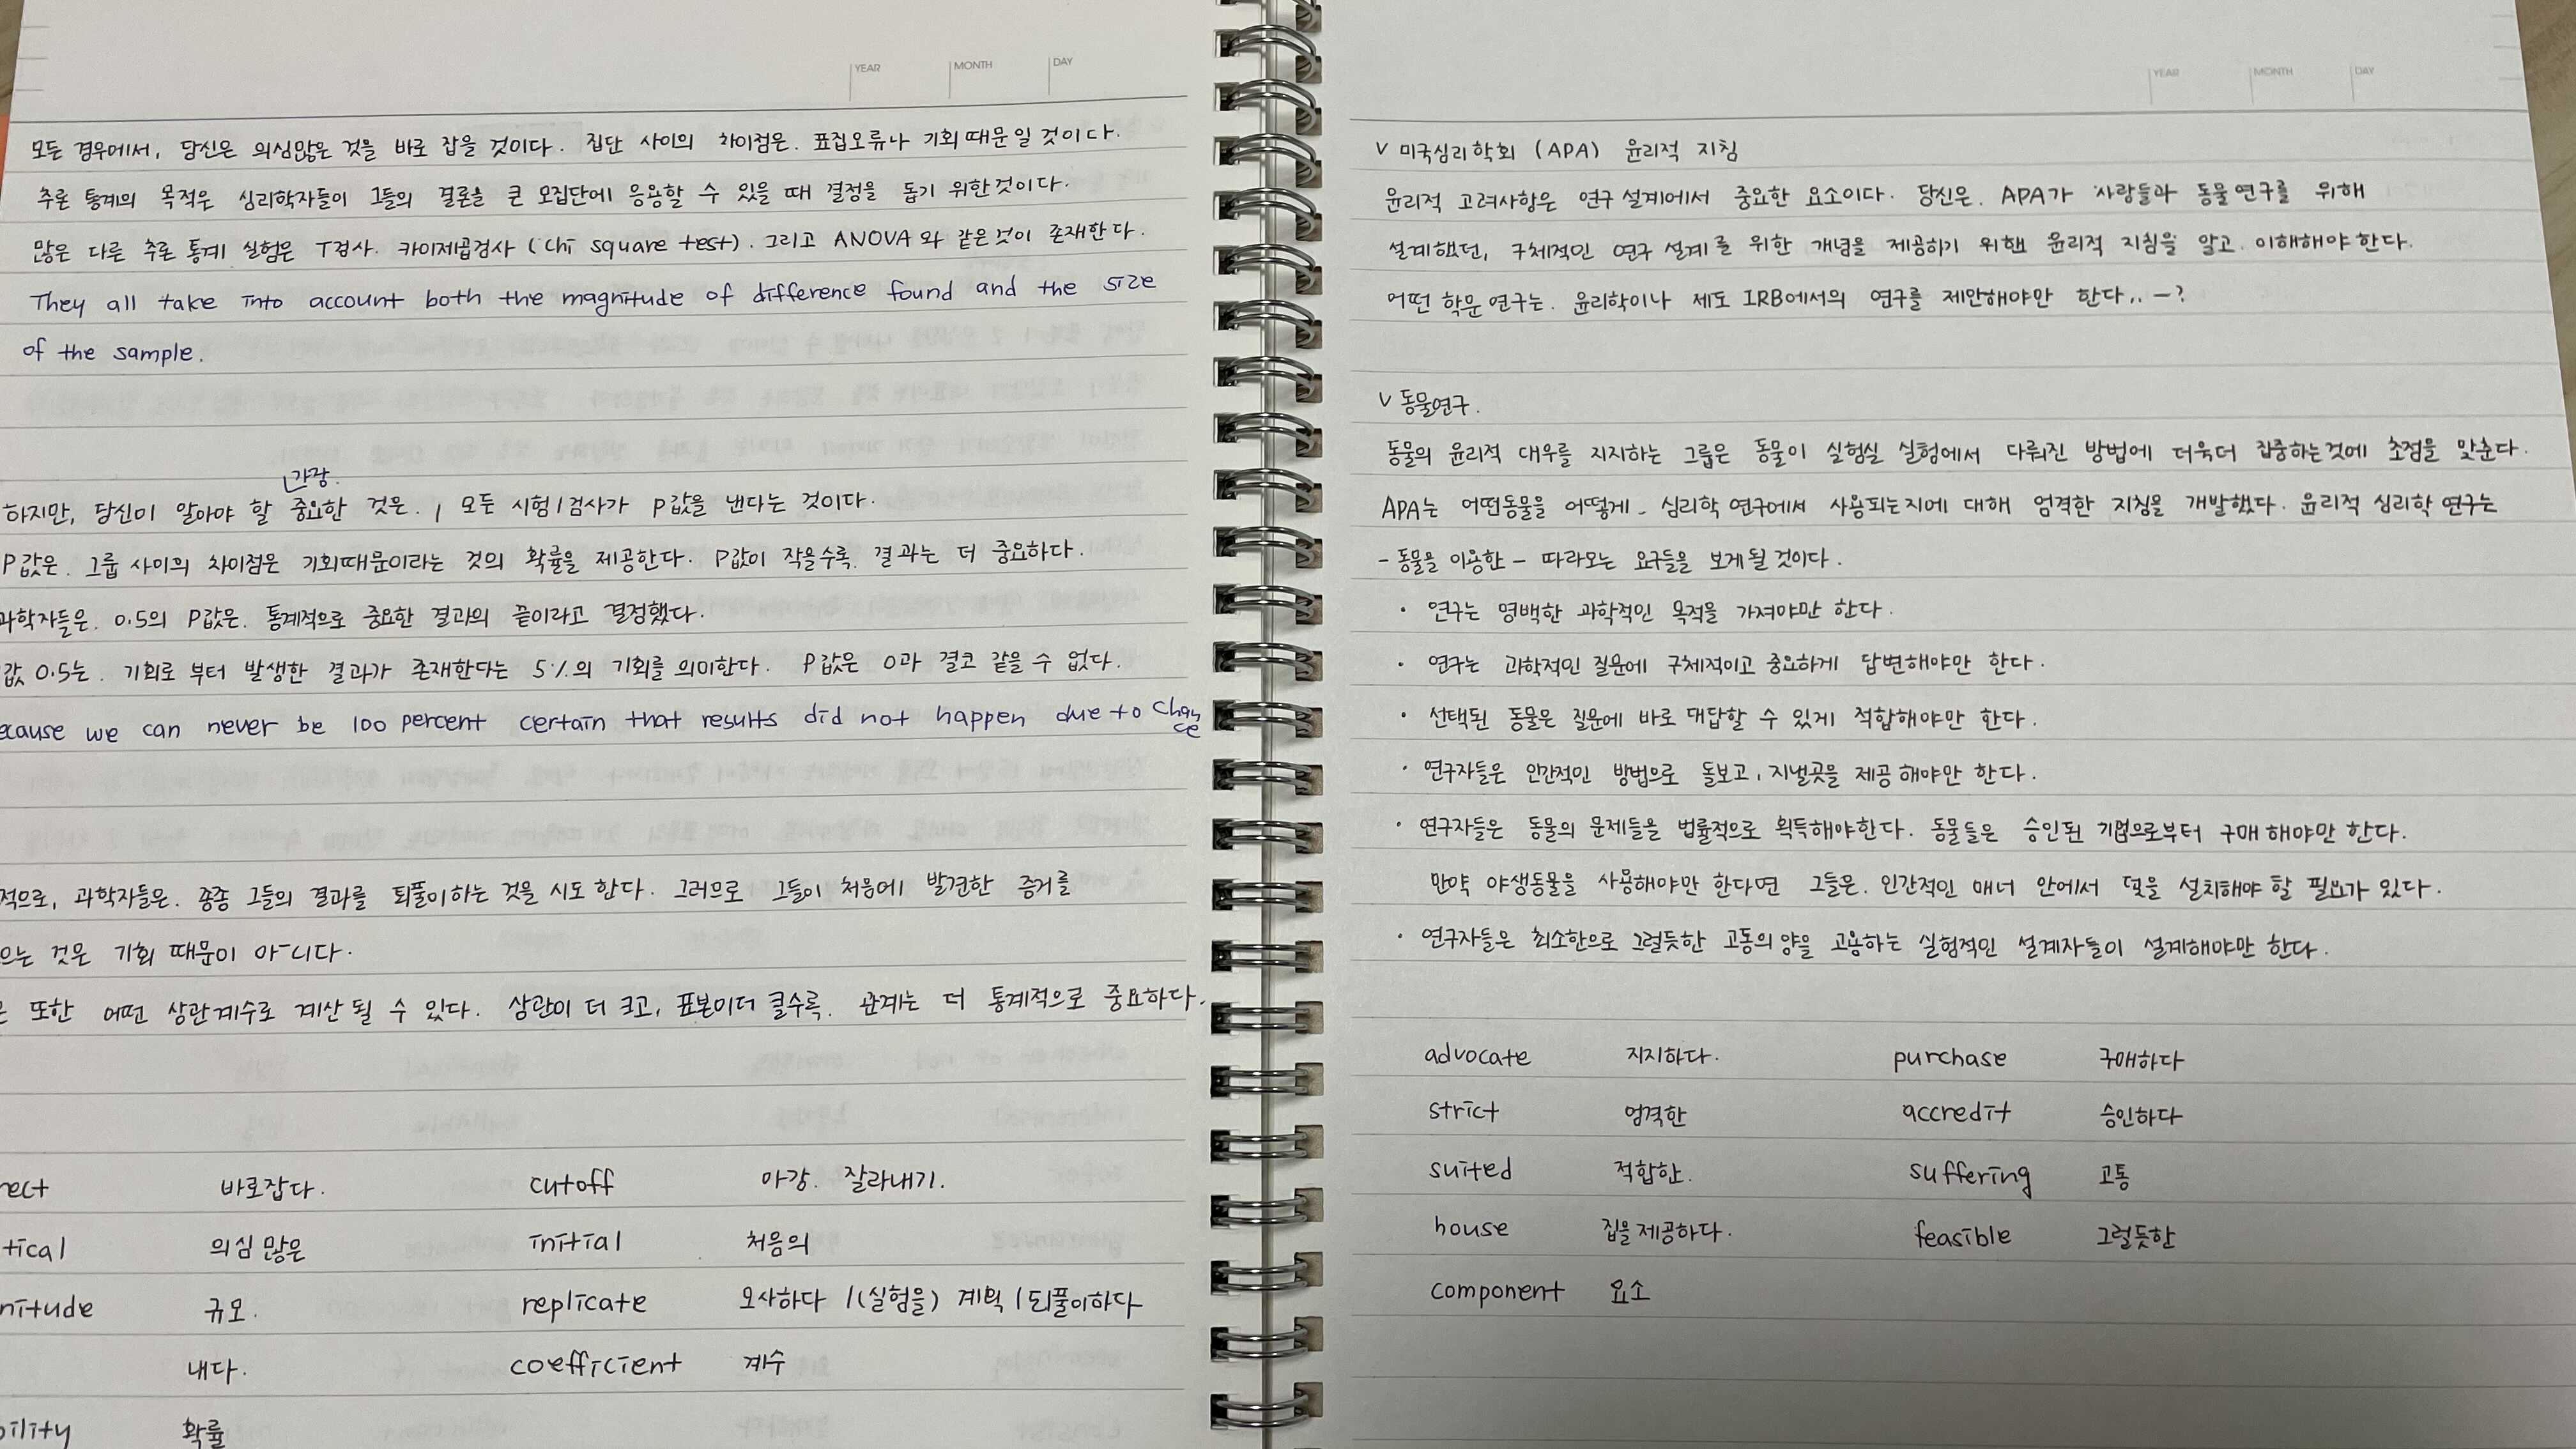 YEAR MONTH DAY
모든 경우에서, 당신은 의심많은 것을 바로 잡을 것이다. 집단 사이의 차이점은. 표집오류나 기회때문일 것이다.
추론 통계의 목적은 심리학자들이 그들의 결론을 큰 모집단에 응용할 수 있을 때 결정을 돕기 위한것이다.
많은 다른 추론 통계 실험은 T검사. 카이제곱검사 (chi square test). 그리고 ANOVA 와 같은것이 존재한다.
They all take into account both the magnitude of difference found and the size
of the sample.
가장.
하지만, 당신이 알아야 할 중요한 것은. , 모든 시험/검사가 P값을 낸다는 것이다.
P값은. 그룹 사이의 차이점은 기회때문이라는 것의 확률을 제공한다. P값이 작을수록. 결과는 더 중요하다.
과학자들은. 0.5의 P값은. 통계적으로 중요한 결과의 끝이라고 결정했다.
값 0.5는. 기회로 부터 발생한 결과가 존재한다는 5%의 기회를 의미한다. P값은 0과 결코 같을 수 없다.
ecause we can never be 100 percent certain that results did not happen due to chance
적으로, 과학자들은. 종종 그들의 결과를 되풀이하는 것을 시도 한다. 그러므로 그들이 처음에 발견한 증거를
으는 것은 기회 때문이 아니다.
은 또한 어떤 상관계수로 계산 될 수 있다. 상관이 더 크고, 표본이더 클수록. 관계는 더 통계적으로 중요하다.
rect 바로잡다. cutoff 마감. 잘라내기.
tical 의심 많은 initial 처음의
nitude 규모. replicate 모사하다 /(실험을) 계획 / 되풀이하다
내다. coefficient 계수
bility 확률
YEAR MONTH DAY
V 미국심리학회 (APA) 윤리적 지침
윤리적 고려사항은 연구 설계에서 중요한 요소이다. 당신은. APA가 사람들과 동물연구를 위해
설계했던, 구체적인 연구 설계를 위한 개념을 제공하기 위핸 윤리적 지침을 알고. 이해해야 한다.
어떤 학문 연구는. 윤리학이나 제도 IRB에서의 연구를 제안해야만 한다.. -?
V 동물연구.
동물의 윤리적 대우를 지지하는 그룹은 동물이 실험실 실험에서 다뤄진 방법에 더욱더 집중하는것에 초점을 맞춘다.
APA는 어떤동물을 어떻게 - 심리학 연구에서 사용되는지에 대해 엄격한 지침을 개발했다. 윤리적 심리학 연구는
- 동물을 이용한 - 따라오는 요구들을 보게될 것이다.
· 연구는 명백한 과학적인 목적을 가져야만 한다.
· 연구는 과학적인 질문에 구체적이고 중요하게 답변해야만 한다.
· 선택된 동물은 질문에 바로 대답할 수 있게 적합해야만 한다.
· 연구자들은 인간적인 방법으로 돌보고, 지낼곳을 제공 해야만 한다.
· 연구자들은 동물의 문제들을 법률적으로 획득해야한다. 동물들은 승인된 기업으로부터 구매 해야만 한다.
만약 야생동물을 사용해야만 한다면 그들은. 인간적인 매너 안에서 덫을 설치해야 할 필요가 있다.
· 연구자들은 최소한으로 그럴듯한 고통의 양을 고용하는 실험적인 설계자들이 설계해야만 한다.
advocate 지지하다. purchase 구매하다
strict 엄격한 accredit 승인하다
suited 적합한. suffering 고통
house 집을 제공하다. feasible 그럴듯한
component 요소